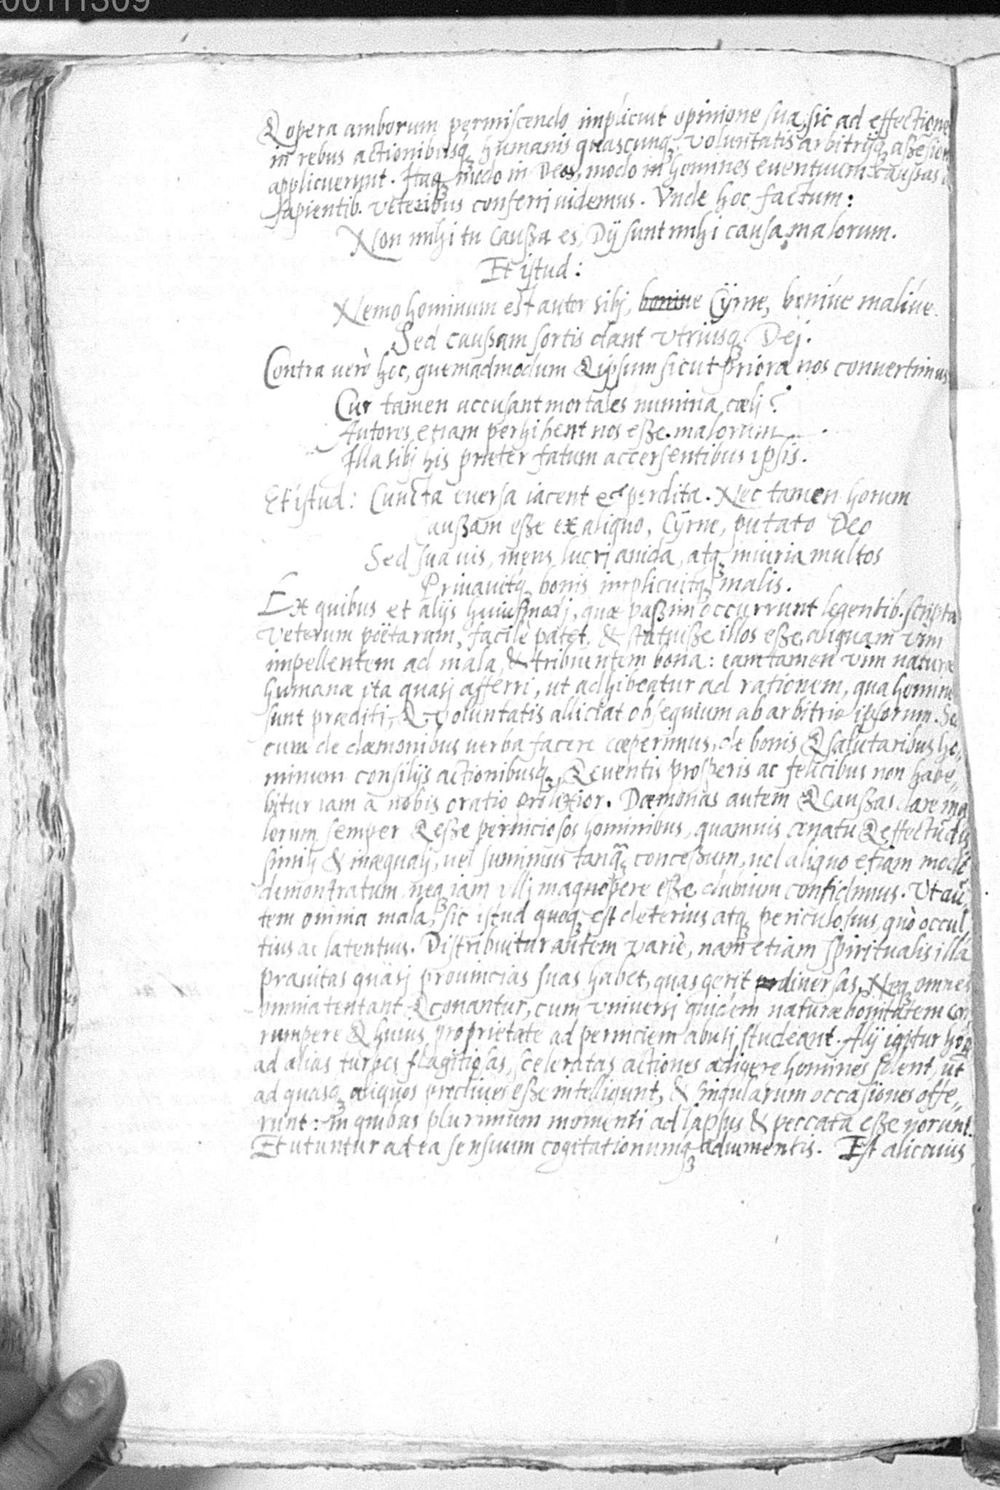 00111309
& opera amborum permiscendo implicuit opinione sua, sic ad effectione
in rebus actionibusq; humanis quascunq; voluntatis arbitrijq; aßesion
applicuerunt. Itaq; modo in Deos, modo in homines eventuum caussas a
sapientib. veteribus conferri videmus. Vnde hoc factum:
Non mihi tu caußa es, Dij sunt mihi causa malorum.
Et istud:
Nemo hominum est autor sibj, Cyrne, boniue maliue.
Sed caußam sortis dant vtriusq; Dej.
Contra verò hoc, quemadmodum & ipsum sicut priora nos convertimus
Cur tamen accusant mortales numina cælj?
Autores etiam perhibent nos eße malorum
Illa sibj his præter fatum accersentibus ipsis.
Et istud: Cuncta eversa iacent et perdita. Nec tamen horum
caußam eße ex aliquo, Cyrne, putato Deo
Sed sua vis, mens lucrj avida, atq; iniuria multos
Privavitq; bonis implicuitq; malis.
Ex quibus et alijs huiusmodj, quæ paßim occurrunt legentib. scripta
veterum poëtarum, facilè patet, & statuiße illos eße aliquam vim
impellentem ad mala, & tribuentem bona: eam tamen vim naturæ
humanæ ita quasj afferri, ut adhibeatur ad rationem, qua homine
sunt præditj, & voluntatis alliciat obsequium ab arbitrio ipsorum. Se
cum de dæmonibus verba facere cæperimus, de bonis & salutaribus ho-
minum consilijs actionibusq; & eventis prosperis ac felicibus non habe-
bitur iam à nobis oratio prolixior. Dæmonas autem & caußas dare ma
lorum semper & eße perniciosos hominibus, quamuis conatu & effectu dis
similj & inæqualj, vel sumimus tanq; conceßum, vel aliquo etiam modo
demonstratum, neq; iam vllj magnopere eße dubium confidimus. Vt au-
tem omnia mala, sic istud quoq; est deterius atq; periculosius, quò occul
tius ac latentius. Distribuitur autem variè, nam etiam spiritualis illa
pravitas quasj provincias suas habet, quas gerit diversas. Neq; omnes
omnia tentant & conantur, cum vniversi quidem naturæ bonitatem cor
rumpere & huius proprietate ad perniciem abuti studeant. Alij igitur
ad alias turpes flagitiosas, sceleratas actiones adigere homines solent, ut
ad quasq; aliquos proclives eße intelligunt, & singularum occasiones offe-
runt: in quibus plurimum momenti ad lapsus & peccata eße norunt.
Et utuntur ad ea sensuum cogitationumq; adiumentis. Est alicuius